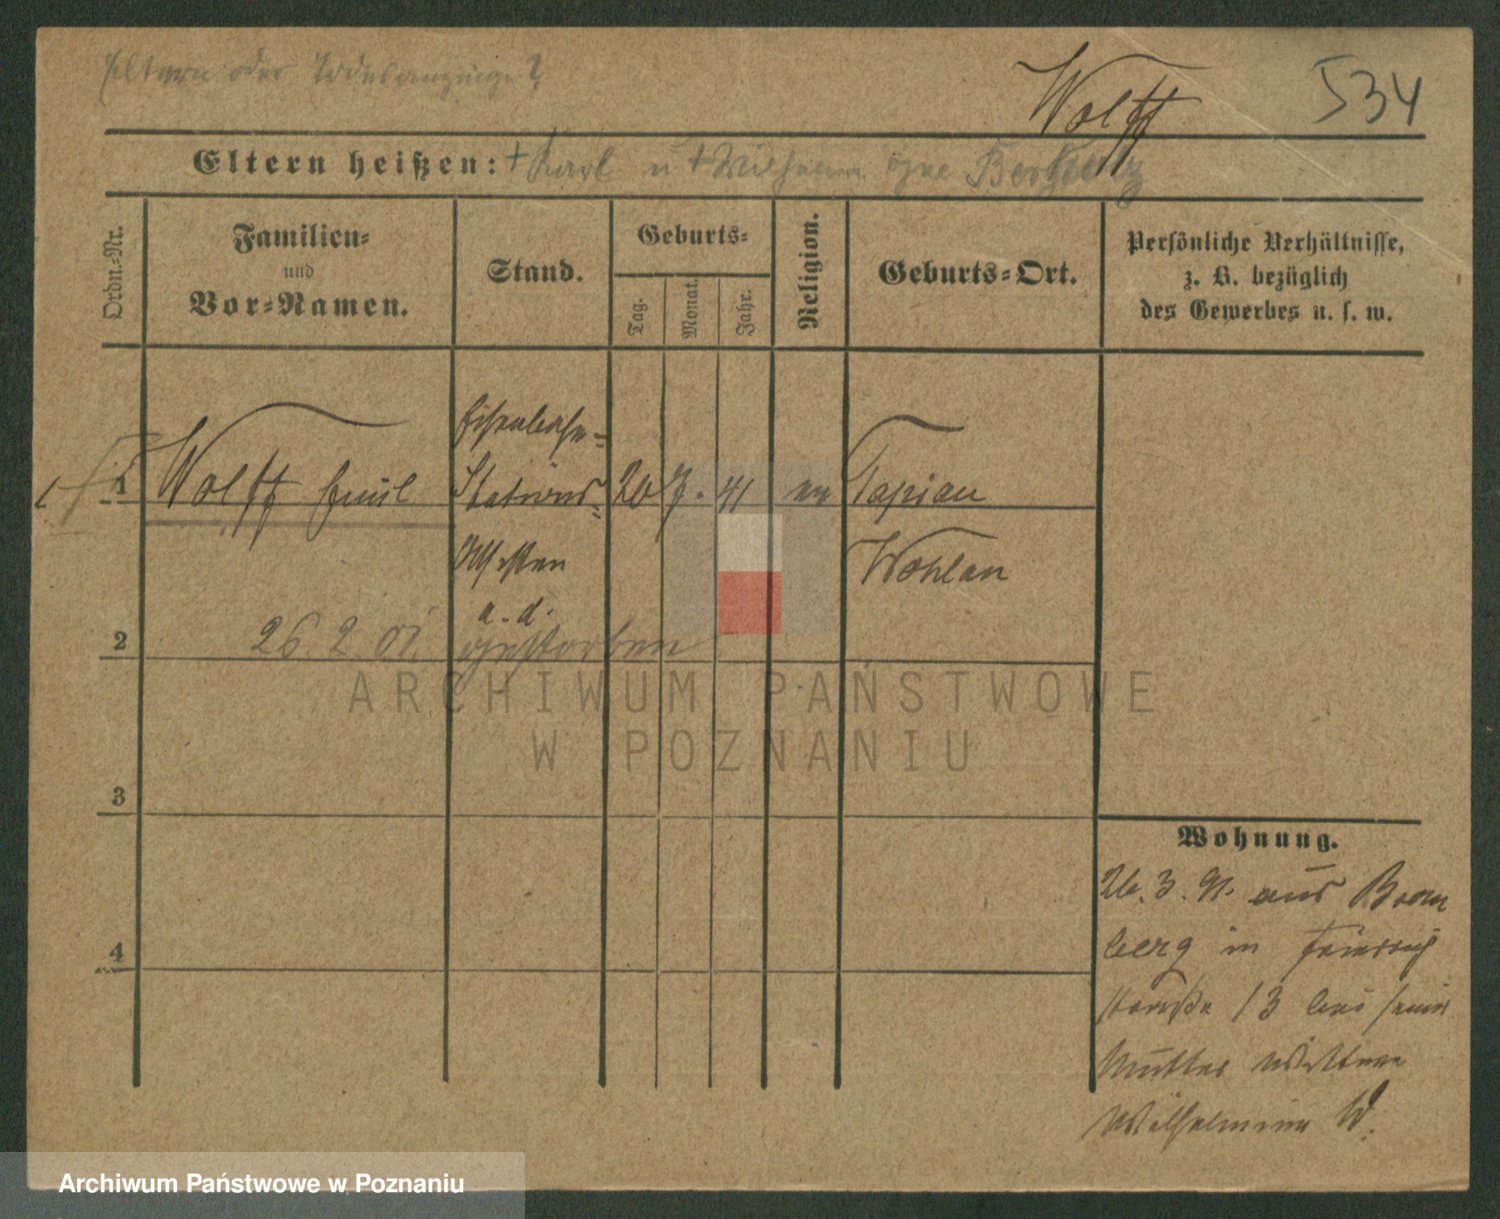 Eltern oder Todesanzeige?
Wolff
534
Eltern heißen: † Karl u † Wilhelm. geb
Ordn.-Nr.
Familien-
und
Vor-Namen.
Stand.
Geburts-
Tag.
Monat.
Jahr.
Religion.
Geburts-Ort.
Persönliche Verhältnisse,
z. B. bezüglich
des Gewerbes u. s. w.
1
Wolff Emil
Eisenbahn-
Stations-
Assisten
a. d.
26 7. 41
ev
Tapiau
Wohlau
2
26 2 01. gestorben
3
4
ARCHIWUM PAŃSTWOWE
W POZNANIU
Wohnung.
26. 3. 91. aus Brom
berg in Friedrich
straße 13 bei seiner
Mutter Wittwe
Wilhelmine W.
Archiwum Państwowe w Poznaniu